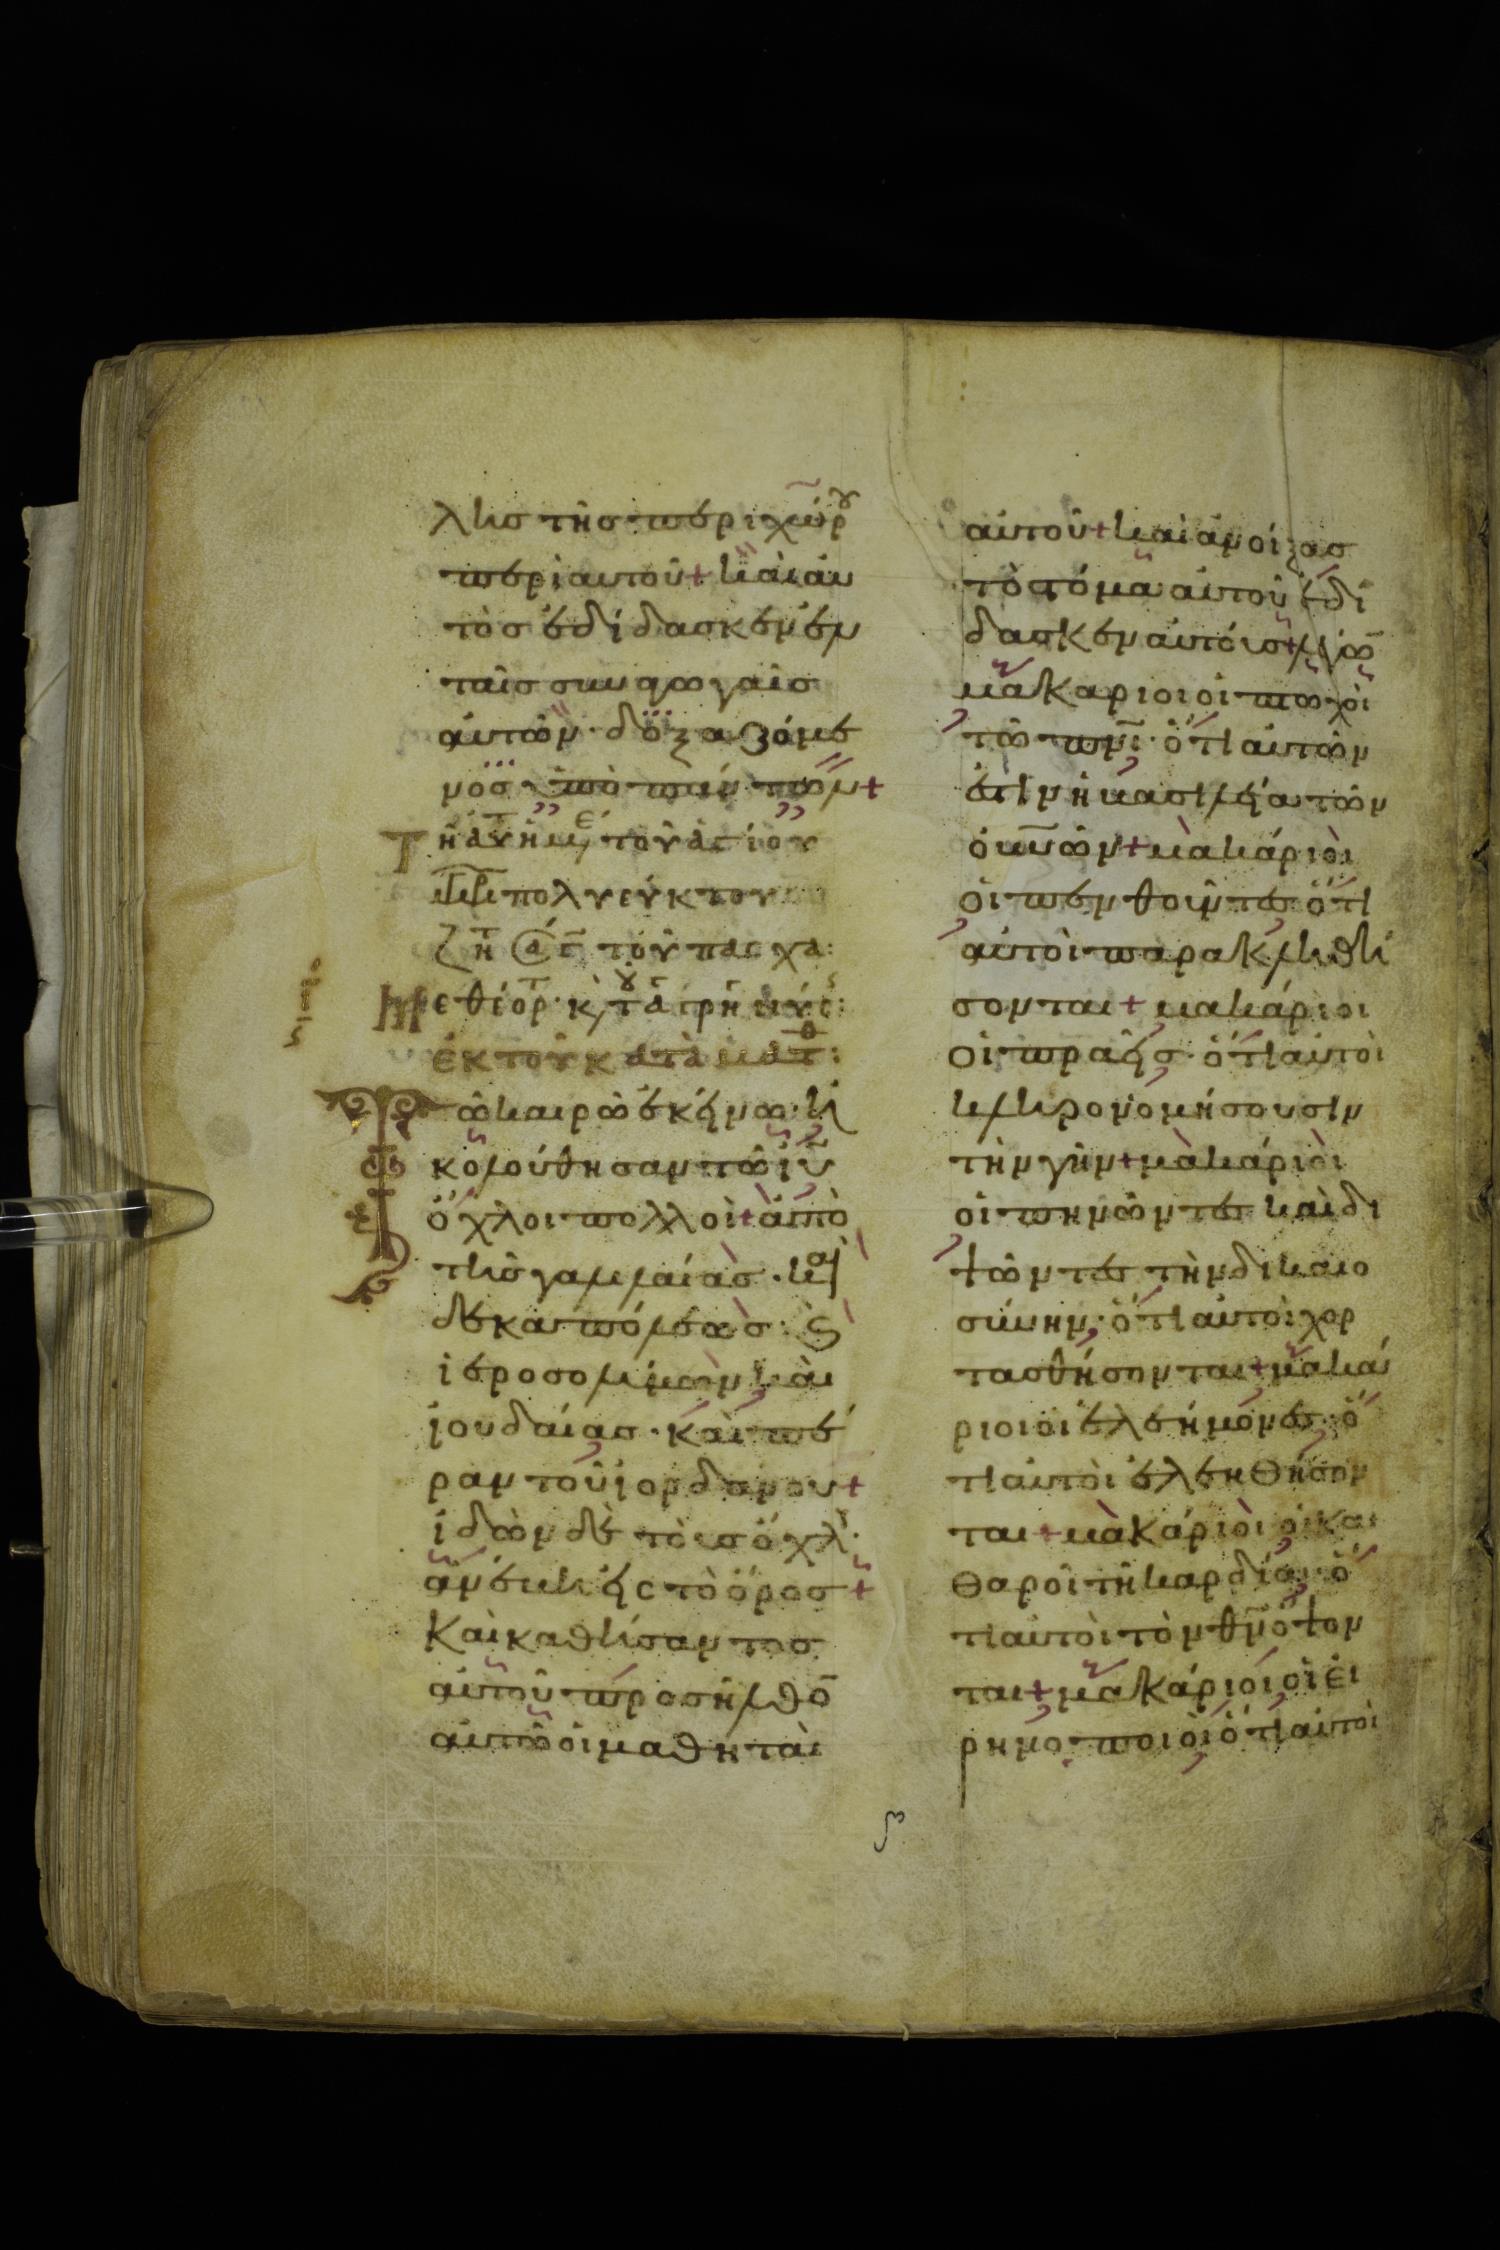 λης της περιχώρου
περὶ αυτοῦ+ καὶ αυ
τὸσ ἐδίδασκεν ἐν
ταῖσ συναγωγαῖσ
αὐτῶν· δοξαζόμε
νοσ ὑπὸ πάντων+
Τῆ αυτῆ ημε, τοῦ ἁγίου
πολυεύκτου
ζητ τοῦ πασχα:
ἐκ τοῦ κατὰ ματθ:
Τῶ καιρῶ ἐκείνω· ἠ
κολούθησαν τῶ ἰυ
ὄχλοι πολλοὶ+ ἀπὸ
τῆσ γαλιλαίασ· καὶ
δεκαπόλεωσ· 
ἱεροσολύμων καὶ
ἰουδαίασ· καὶ πέ
ραν τοῦ ἰορδάνου+
ἰδὼν δὲ τοὺσ ὄχλ·
ἀνέβη εἰς τὸ ὄροσ+
Καὶ καθήσαντοσ
αὐτοῦ προσῆλθο
αὐτῶ οἱ μαθηταὶ
αὐτοῦ+ καὶ ἀνοίξασ
τὸ στόμα αὐτοῦ ἐδί
δασκεν αὐτούσ+ λέγω
μακάριοι οἱ πτωχοὶ
τῶ πνι· ὅτι αὐτῶν
ἐστὶν ἡ βασιλεία τῶν
οὐνῶν+ μακάριοι
οἱ πενθοῦντεσ ὅτι
αὐτοὶ παρακληθή
σονται+ μακάριοι
οἱ πραεῖσ· ὅτι αὐτοὶ
κληρονομήσουσιν
τὴν γῆν+ μακάριοι
οἱ πεινῶντεσ καὶ δι
ψῶντεσ τὴν δικαιο
σύνην· ὅτι αὐτοὶ χορ
τασθήσονται+ μακά
ριοι οἱ ἐλεήμονεσ· ὅ
τι αὐτοὶ ἐλεηθήσον
ται+ μακάριοι οἱ κα
θαροὶ τῆ καρδία· ὅ
τι αὐτοὶ τὸν θν ὄψον
ται+ μακάριοι οἱ εἰ
ρηνοποιοὶ ὅτι αὐτοὶ